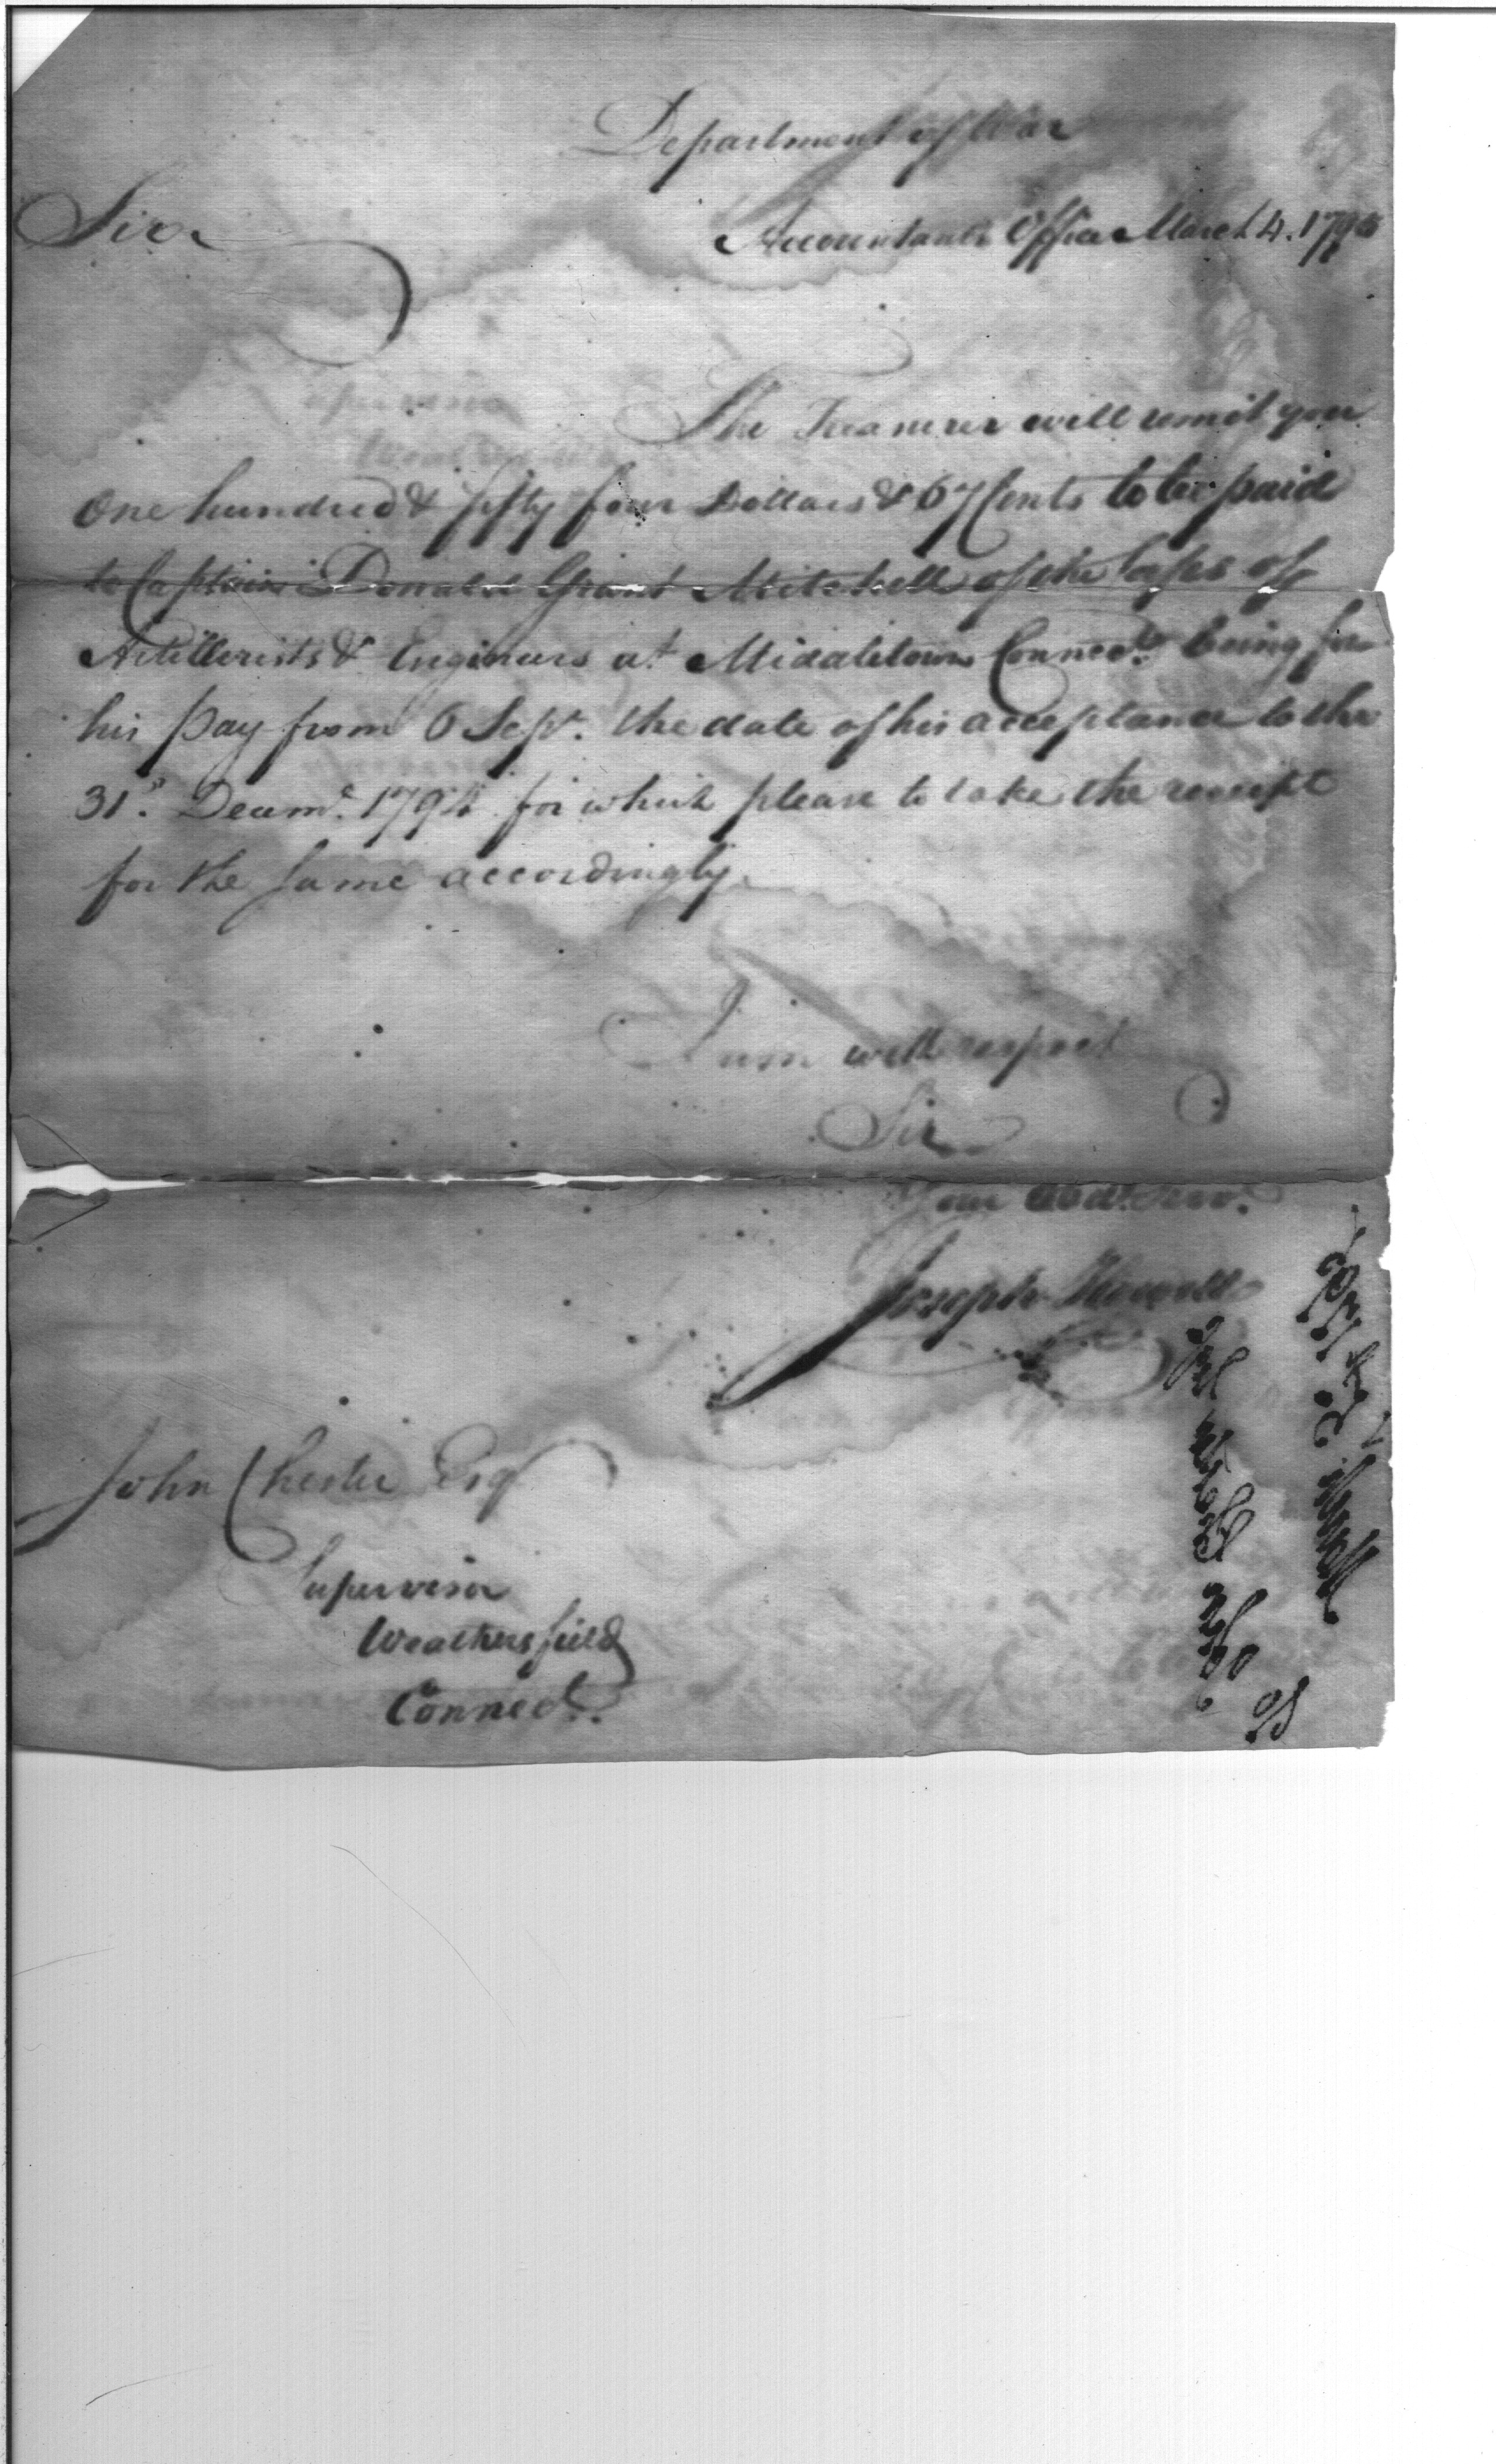 Department of War
Accountants Office March 4. 1795
Sir
The Treasurer will remit you
One hundred & fifty four Dollars & 67 Cents to be paid
to Captain Donald Grant Mitchell of the Corps of
Artillerists & Engineers at Middletown Connect. being for
his pay from 6 Sept. the date of his acceptance to the
31st. Decemr. 1794 for which please to take the receipt
for the same accordingly.
I am with respect
Sir
Your Obdt. Servt.
Joseph Howell
John Chester Esqr
Supervisor
Weathersfield
Connect.
March